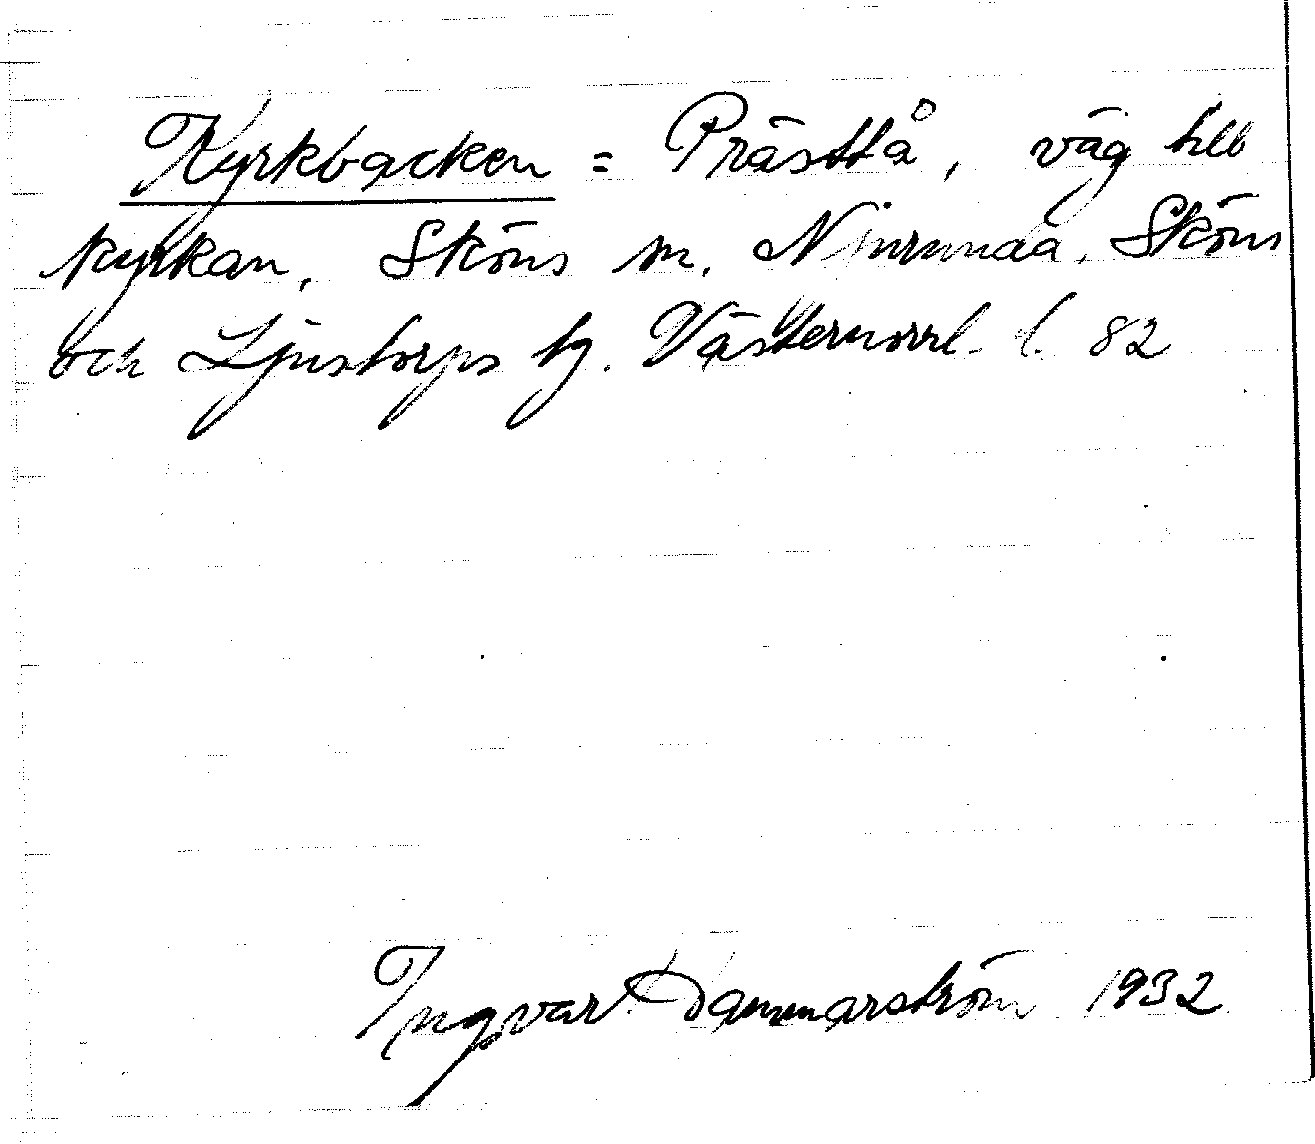 Kyrkbacken = Prästtå, väg till
kyrkan, Sköns sn. Njurunda, Sköns
och Ljustorps tg. Västernorrl. l. 82
Ingvar Hammarström 1932